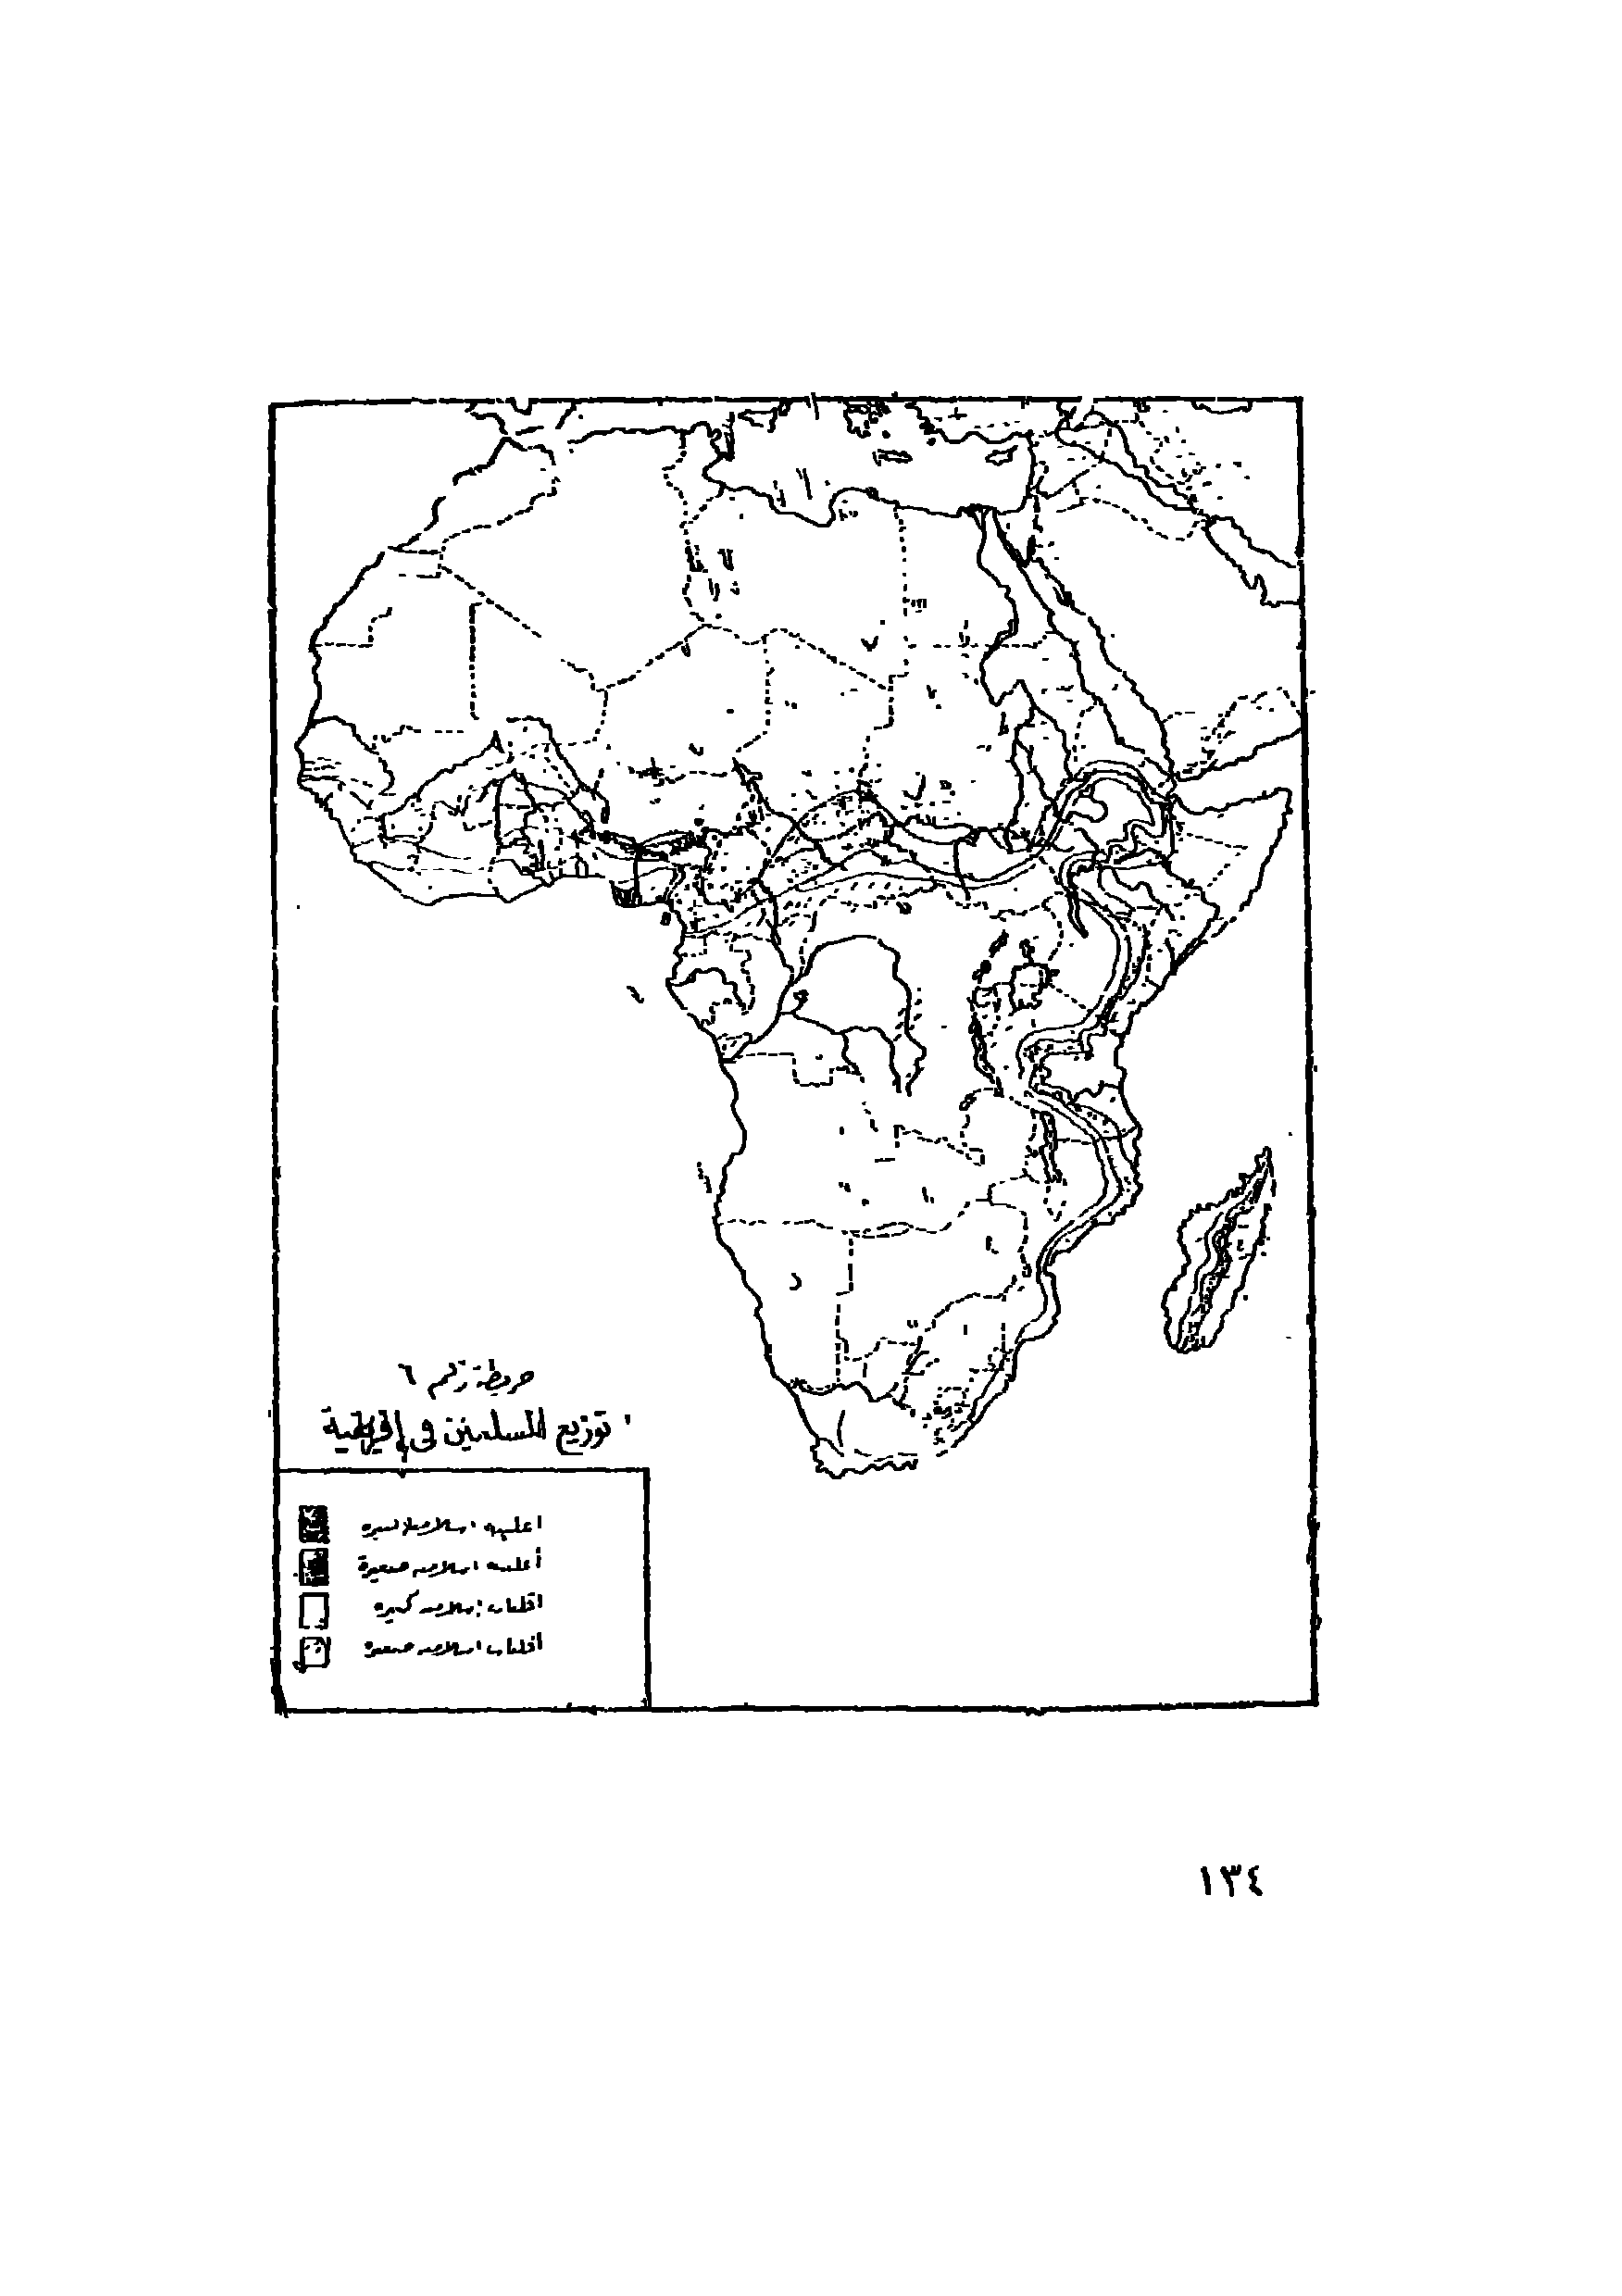 خريطة رقم ٦
توزيع المسلمين في إفريقية
أغلبية إسلامية كبيرة
أغلبية إسلامية صغيرة
أقليات إسلامية كبيرة
أقليات إسلامية صغيرة
١٣٤